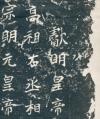 獻明皇帝
高祖右丞相
宗明元皇帝